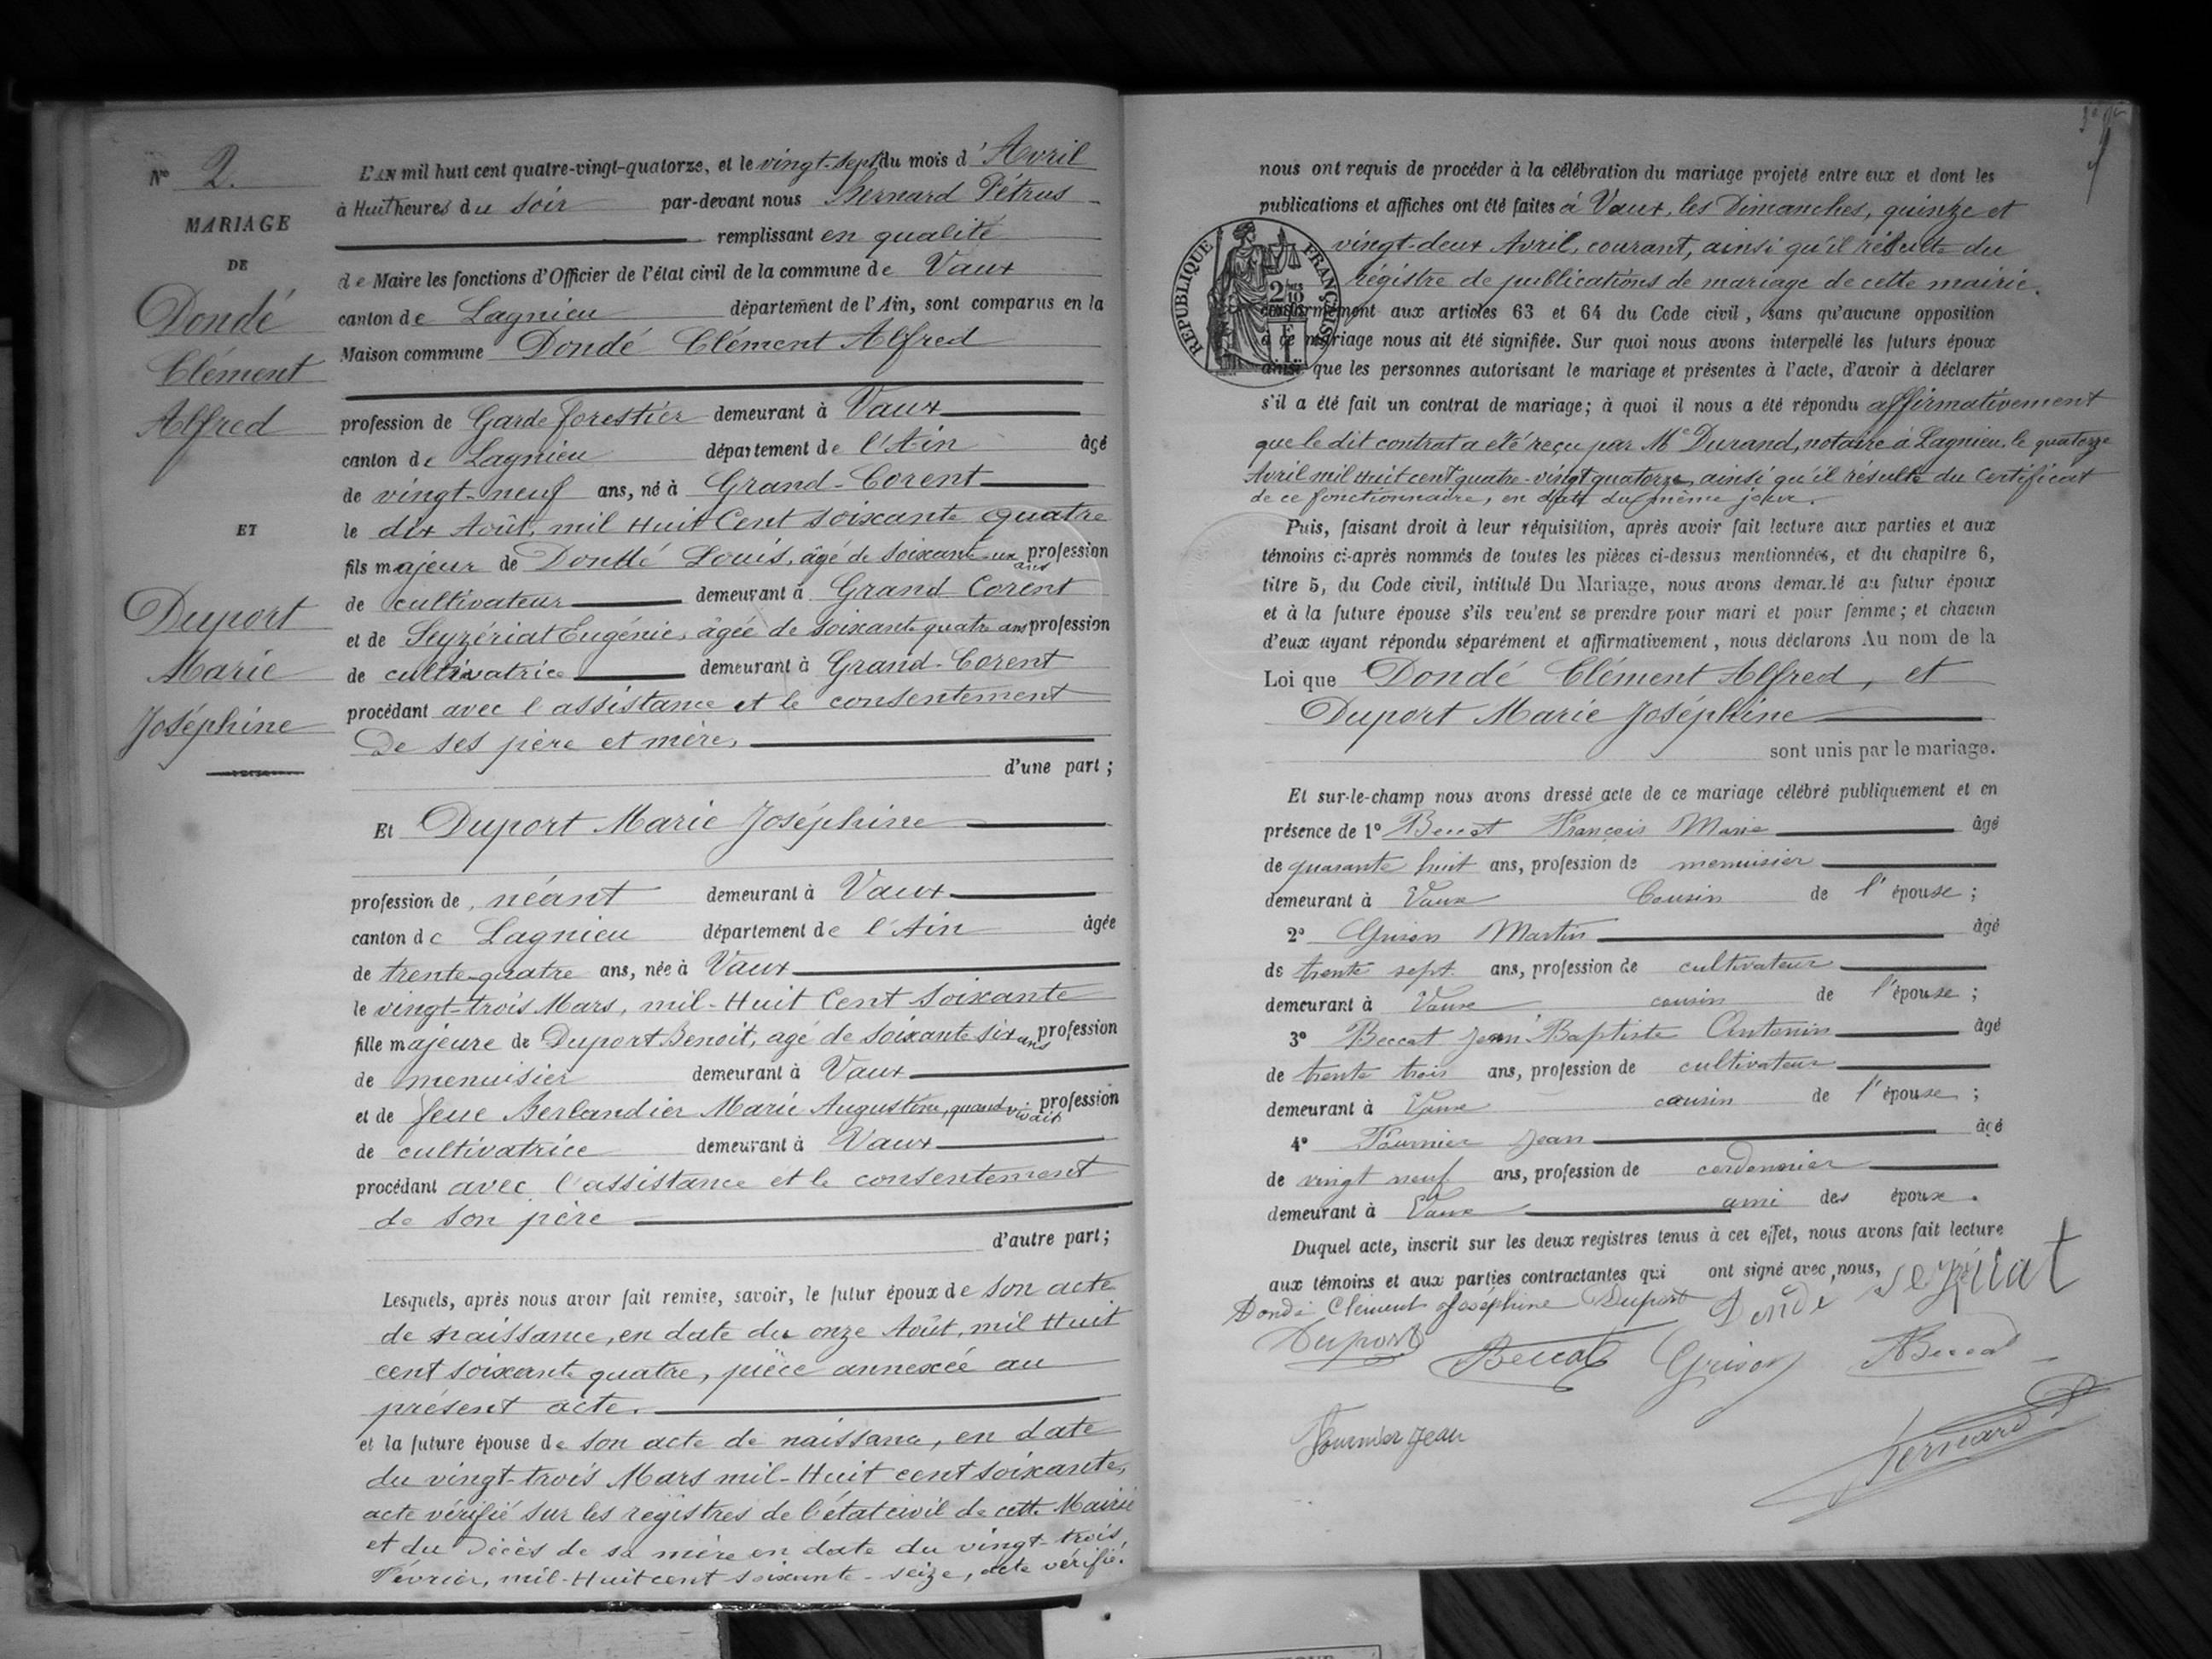 N° 2.
MARIAGE
DE
Dondé
Clément
Alfred
ET
Duport
Marie
Joséphine
L'AN mil huit cent quatre-vingt-quatorze, et le vingt-sept du mois d'Avril
à Huit heures du soir par-devant nous Bernard Pétrus
remplissant en qualité
de Maire les fonctions d'Officier de l'état civil de la commune de Vaux
canton de Lagnieu département de l'Ain, sont comparus en la
Maison commune Dondé Clément Alfred
profession de Garde forestier demeurant à Vaux
canton de Lagnieu département de l'Ain âgé
de vingt-neuf ans, né à Grand-Corent
le dix Août, mil Huit Cent soixante quatre
fils majeur de Dondé Louis, âgé de soixante-un ans profession
de cultivateur demeurant à Grand Corent
et de Seyzériat Eugénie, âgée de soixante quatre ans profession
de cultivatrice demeurant à Grand-Corent
procédant avec l'assistance et le consentement
De ses père et mère,
d'une part ;
Et Duport Marie Joséphine
profession de néant demeurant à Vaux
canton de Lagnieu département de l'Ain âgée
de trente-quatre ans, née à Vaux
le vingt-trois Mars, mil-Huit Cent soixante
fille majeure de Duport Benoit, agé de soixante six ans profession
de menuisier demeurant à Vaux
et de feue Berlandier Marie Augustine, quand vivait profession
de cultivatrice demeurant à Vaux
procédant avec l'assistance et le consentement
de son père
d'autre part ;
Lesquels, après nous avoir fait remise, savoir, le futur époux de son acte
de naissance, en date du onze Août, mil Huit
cent soixante quatre, pièce annexée au
présent acte.
et la future épouse de son acte de naissance, en date
du vingt-trois Mars mil-Huit cent soixante,
acte vérifié sur les régistres de l'état civil de cette Mairie
et du Décès de sa mère en date du vingt-trois
Février, mil-Huit cent soixante-seize, acte vérifié.
nous ont requis de procéder à la célébration du mariage projeté entre eux et dont les
publications et affiches ont été faites à Vaux, les Dimanches, quinze et
vingt-deux Avril, courant, ainsi qu'il résulte du
régistre de publications de mariage de cette mairie.
conformément aux articles 63 et 64 du Code civil, sans qu'aucune opposition
à ce mariage nous ait été signifiée. Sur quoi nous avons interpellé les futurs époux
ainsi que les personnes autorisant le mariage et présentes à l'acte, d'avoir à déclarer
s'il a été fait un contrat de mariage ; à quoi il nous a été répondu affirmativement
que le dit contrat a été reçu par Me Durand, notaire à Lagnieu, le quatorze
Avril mil Huit cent quatre-vingt quatorze, ainsi qu'il résulte du Certificat
de ce fonctionnaire, en date du même jour.
RÉPUBLIQUE FRANÇAISE
Puis, faisant droit à leur réquisition, après avoir fait lecture aux parties et aux
témoins ci-après nommés de toutes les pièces ci-dessus mentionnées, et du chapitre 6,
titre 5, du Code civil, intitulé Du Mariage, nous avons demandé au futur époux
et à la future épouse s'ils veulent se prendre pour mari et pour femme ; et chacun
d'eux ayant répondu séparément et affirmativement, nous déclarons Au nom de la
Loi que Dondé Clément Alfred, et
Duport Marie Joséphine
sont unis par le mariage.
Et sur-le-champ nous avons dressé acte de ce mariage célébré publiquement et en
présence de 1° Beccat François Marie âgé
de quarante huit ans, profession de menuisier
demeurant à Vaux Cousin de l'épouse ;
2° Grison Martin âgé
de trente sept ans, profession de cultivateur
demeurant à Vaux cousin de l'épouse ;
3° Beccat Jean Baptiste Antonin âgé
de trente trois ans, profession de cultivateur
demeurant à Vaux cousin de l'épouse ;
4° Fournier Jean âgé
de vingt neuf ans, profession de cordonnier
demeurant à Vaux ami des époux.
Duquel acte, inscrit sur les deux registres tenus à cet effet, nous avons fait lecture
aux témoins et aux parties contractantes qui ont signé avec nous,
Dondé Clément Joséphine Duport Dondé
Duport Beccat Grison Beccat
Fournier Jean
Bernard